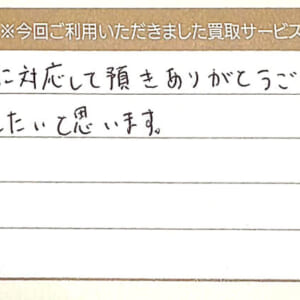 ※今回ご利用いただきました買取サービス
に対応して頂きありがとうご
したいと思います。